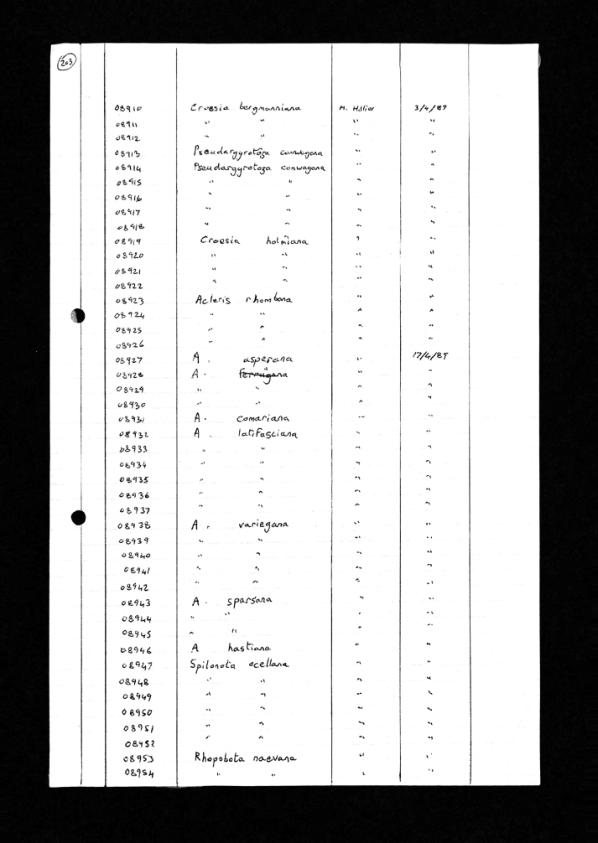 203
08910 Croesia bergmanniana M. Hillier 3/4/89
08911 " " " "
08912 " " " "
08913 Pseudargyrotoza conwagana " "
08914 Pseudargyrotoza conwagana " "
08915 " " " "
08916 " " " "
08917 " " " "
08918 " " " "
08919 Croesia holmiana " "
08920 " " " "
08921 " " " "
08922 " " " "
08923 Acleris rhombana " "
08924 " " " "
08925 " " " "
08926 " " " "
08927 A. asperana " 17/4/89
08928 A. ferrugana " "
08929 " " " "
08930 " " " "
08931 A. comariana " "
08932 A. latifasciana " "
08933 " " " "
08934 " " " "
08935 " " " "
08936 " " " "
08937 " " " "
08938 A. variegana " "
08939 " " " "
08940 " " " "
08941 " " " "
08942 " " " "
08943 A. sparsana " "
08944 " " " "
08945 " " " "
08946 A hastiana " "
08947 Spilonota ocellana " "
08948 " " " "
08949 " " " "
08950 " " " "
08951 " " " "
08952 " " " "
08953 Rhopobota naevana " "
08954 " " " "